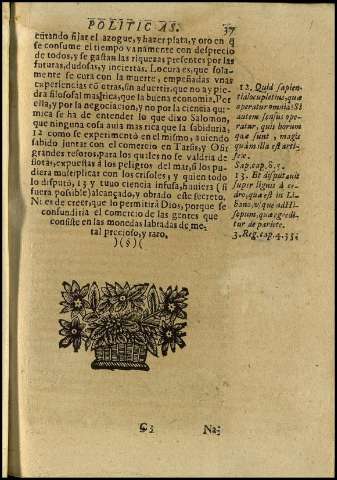 POLITICAS. 37
cutando fijar el azogue, y hazer plata, y oro en q
se consume el tiempo vanamente con desprecio
de todos, y se gastan las riquezas presentes por las
futuras, dudosas, y inciertas. Locura es, que sola-
mente se cura con la muerte, empeñadas vnas
experiencias cõ otras, sin advertir, que no ay pie-
dra filosofal mas rica, que la buena economia. Por
ella, y por la negociacion, y no por la ciencia qui-
mica se ha de entender lo que dixo Salomon,
que ninguna cosa auia mas rica que la sabiduria,
12 como se experimentò en el mismo, auiendo
sabido juntar con el comercio en Tarsis, y Ofir
grandes tesoros, para los quales no se valdria de
flotas, expuestas à los peligros del mar, si los pu-
diera multiplicar con los crisoles, y quien todo
lo disputò, 13 y tuuo ciencia infusa, hauiera (si
fuera posible) alcançado, y obrado este secreto.
Ni es de creer, que lo permitirà Dios, porque se
confundiria el comercio de las gentes que
consiste en las monedas labradas de me-
tal precioso, y raro.
)(§)(
12. Quid sapien-
tia locupletius, quæ
operatur omnia? Si
autem sensus ope-
ratur, quis horum
quæ sunt, magis
quàm illa est arti-
fex.
Sap. cap. 8. 5.
13. Et disputauit
super lignis à ce-
dro, quæ est in Li-
bano, vsque ad Hi-
sopum, quæ egredi-
tur de pariete.
3. Reg. cap. 4. 33.
C3 Na-